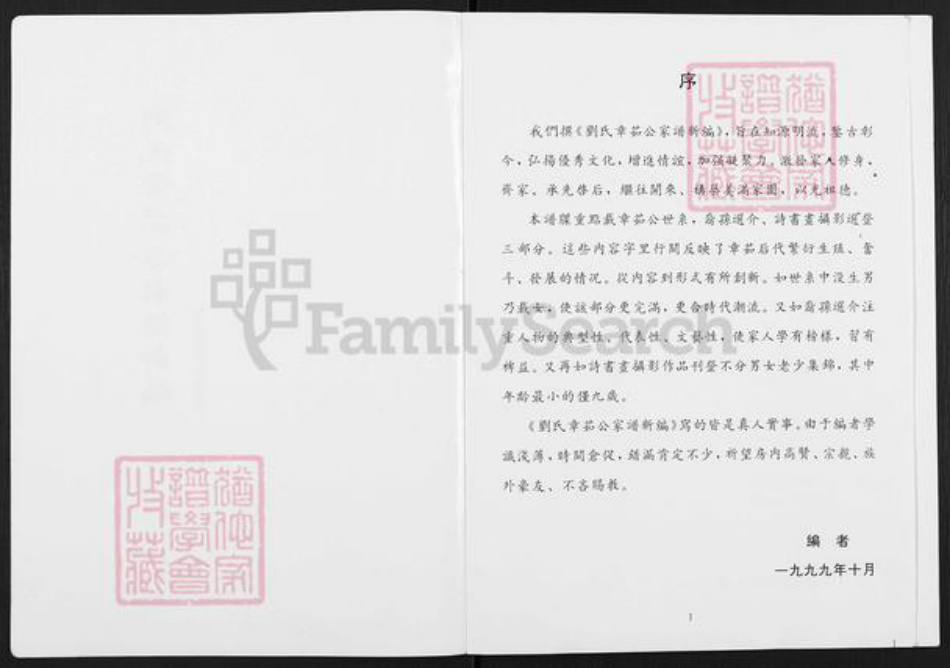 序
我們撰《劉氏章茹公家譜新編》，旨在知源明流，鑒古彰
今，弘揚優秀文化，增進情誼，加强凝聚力，激揚家人修身、
齊家。承先啓后，繼往開來、構築美滿家園，以光祖德。
本譜牒重點載章茹公世系，裔孫選介、詩書畫攝影選登
三部分。這些内容字里行間反映了章茹后代繁衍生活、奮
斗、發展的情况。從内容到形式有所創新。如世系中没生男
乃載女，使該部分更完滿，更合時代潮流。又如裔孫選介注
重人物的典型性、代表性、文藝性，使家人學有榜樣，習有
裨益。又再如詩書畫攝影作品刊登不分男女老少集錦，其中
年齡最小的僅九歲。
《劉氏章茹公家譜新編》寫的皆是真人實事。由于編者學
識淺薄，時間倉促，錯漏肯定不少，祈望房内高賢、宗親、族
外豪友、不吝賜教。
編 者
一九九九年十月
1
FamilySearch
譜學會
收藏